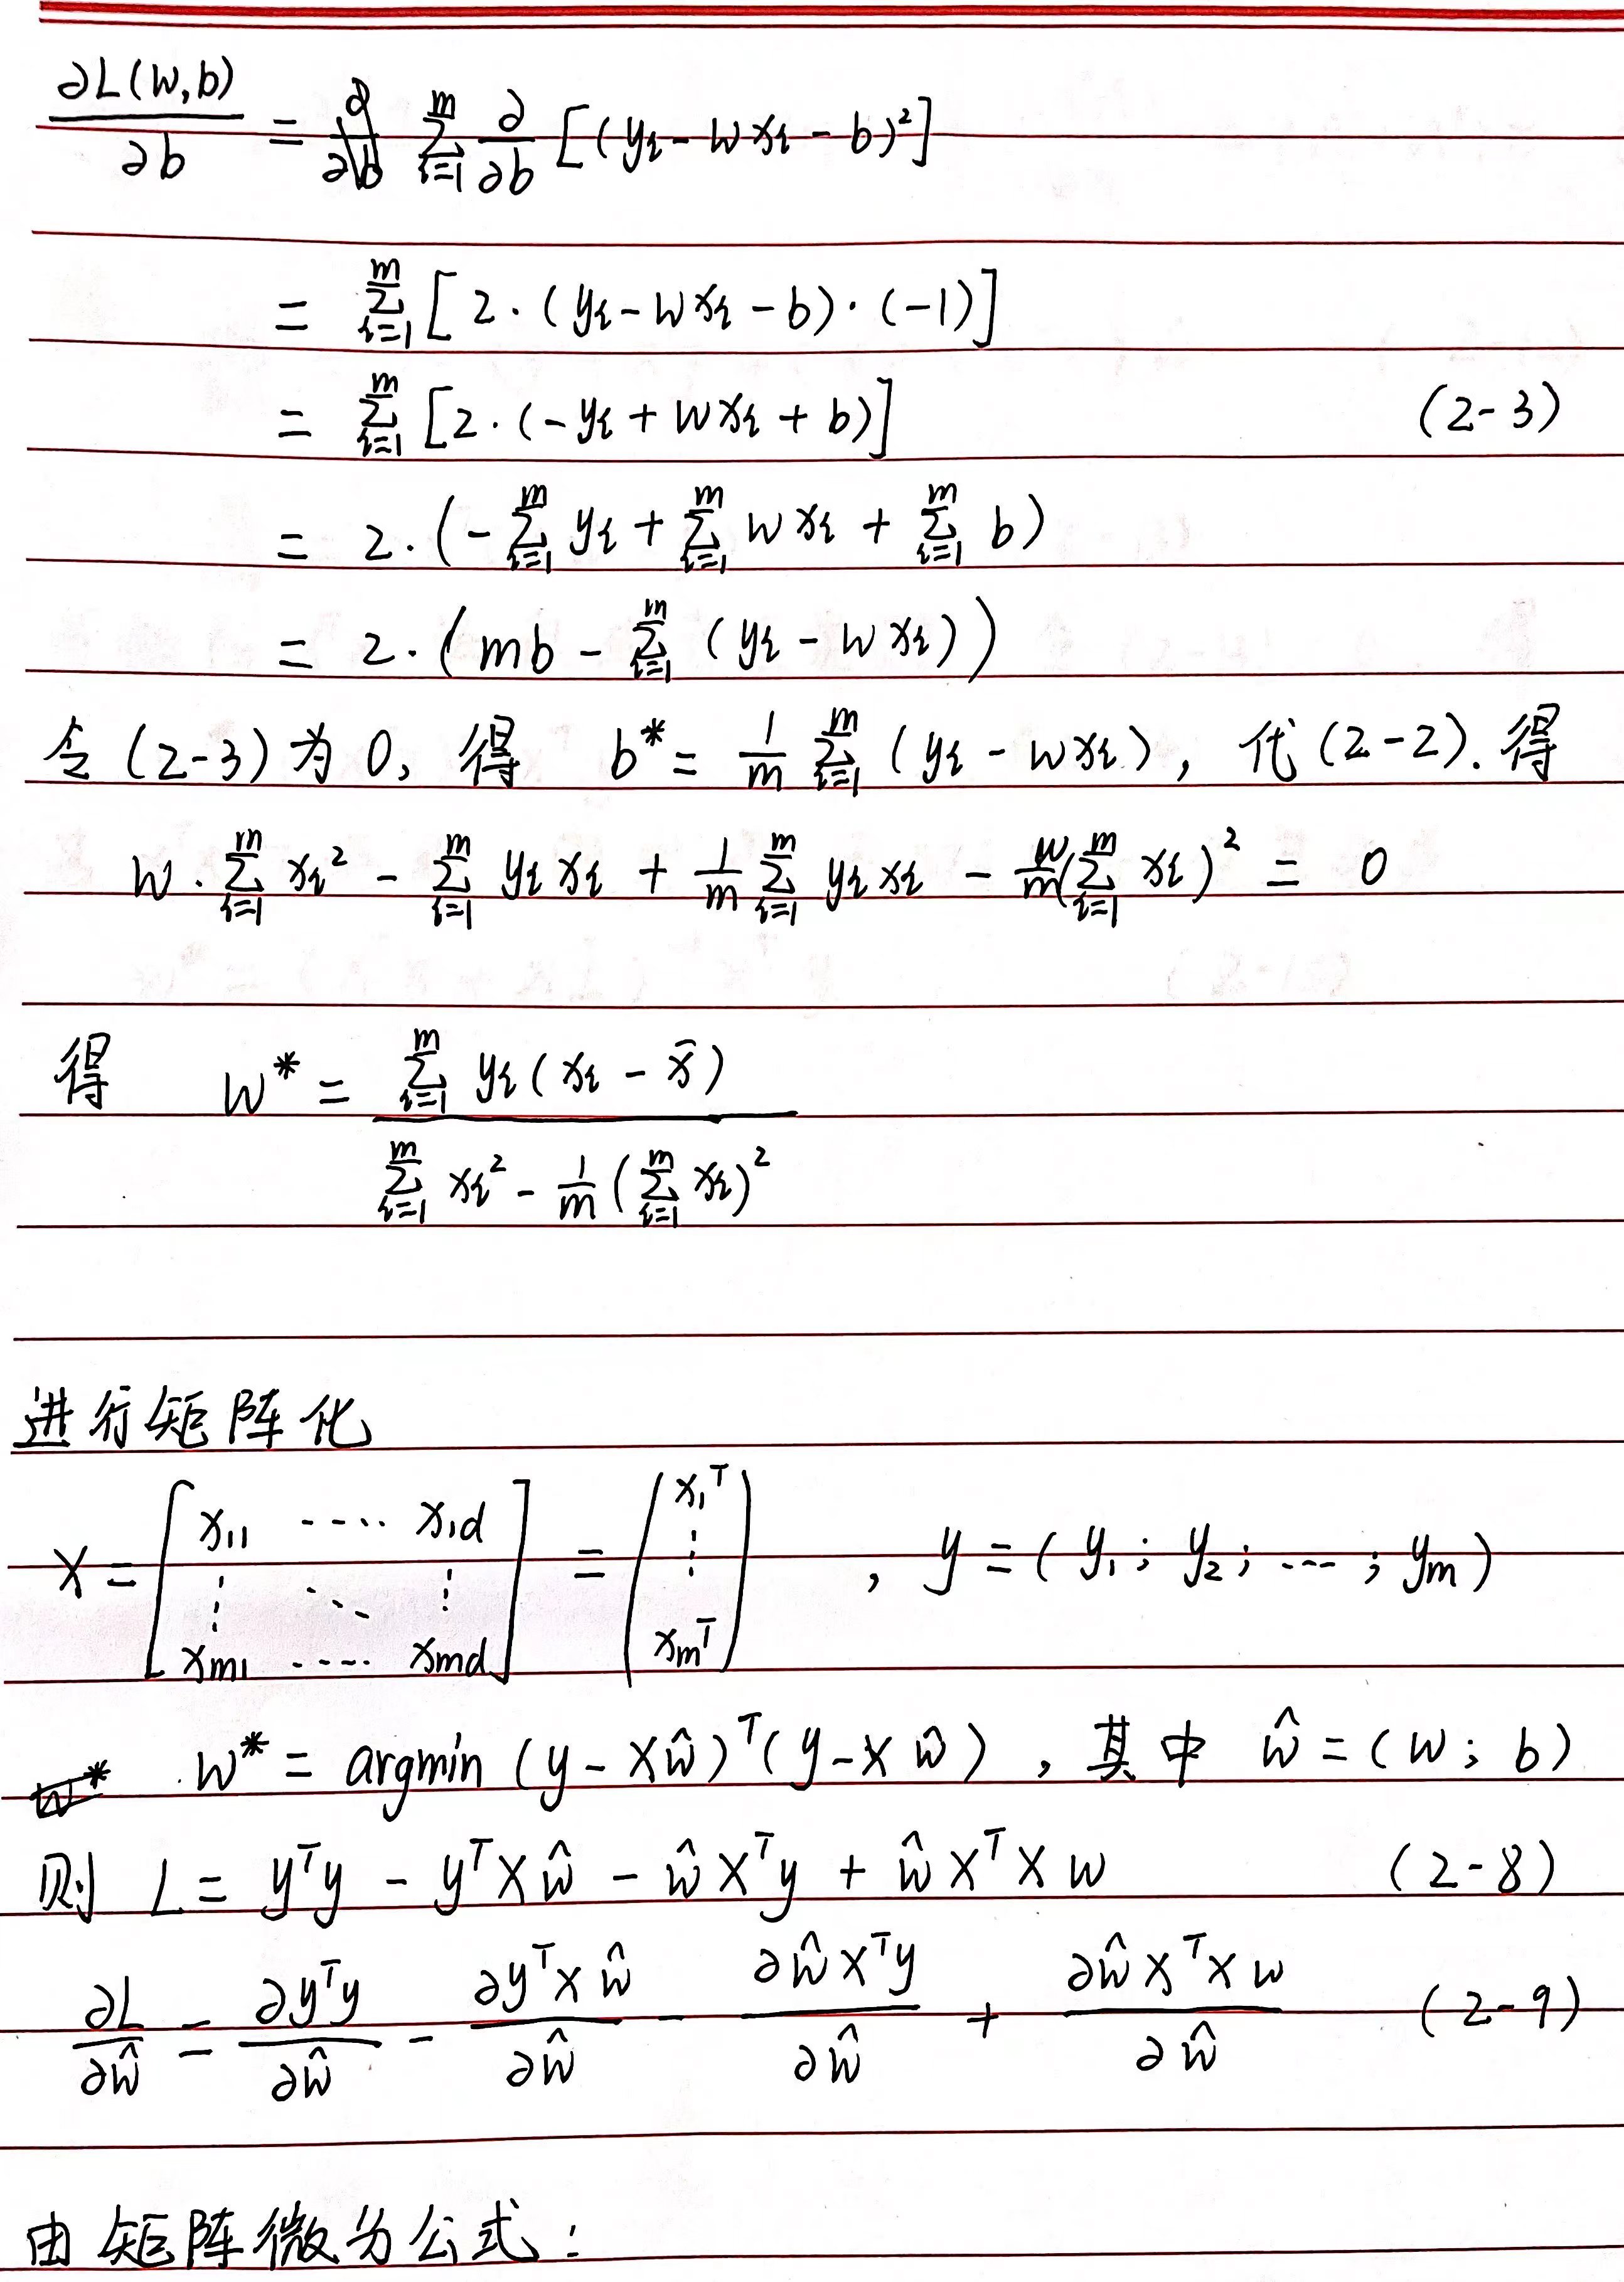 ∂L(w,b)/∂b = ∑_{i=1}^{m} ∂/∂b [(y_i - wx_i - b)²]
= ∑_{i=1}^{m} [2·(y_i - wx_i - b)·(-1)]
= ∑_{i=1}^{m} [2·(-y_i + wx_i + b)] (2-3)
= 2·(-∑_{i=1}^{m} y_i + ∑_{i=1}^{m} wx_i + ∑_{i=1}^{m} b)
= 2·(mb - ∑_{i=1}^{m} (y_i - wx_i))
令(2-3)为0, 得 b* = 1/m ∑_{i=1}^{m} (y_i - wx_i), 代(2-2).得
w·∑_{i=1}^{m} x_i² - ∑_{i=1}^{m} y_i x_i + 1/m ∑_{i=1}^{m} y_i x_i - w/m (∑_{i=1}^{m} x_i)² = 0
得 w* = ∑_{i=1}^{m} y_i(x_i - x̄) / (∑_{i=1}^{m} x_i² - 1/m (∑_{i=1}^{m} x_i)²)
进行矩阵化
X = [x_11 ···· x_1d ⋮ ⋱ ⋮ x_m1 ···· x_md] = (x_1^T ⋮ x_m^T), y = (y_1; y_2; ···; y_m)
w* = argmin (y - Xŵ)^T(y - Xŵ), 其中 ŵ = (w; b)
则 L = y^T y - y^T Xŵ - ŵX^T y + ŵX^T Xw (2-8)
∂L/∂ŵ = ∂y^T y/∂ŵ - ∂y^T Xŵ/∂ŵ - ∂ŵX^T y/∂ŵ + ∂ŵX^T Xw/∂ŵ (2-9)
由矩阵微分公式: